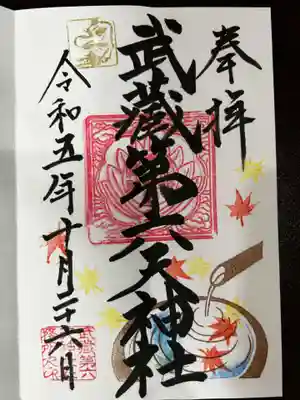 奉拝
武蔵第六天神社
令和五年十月二十六日